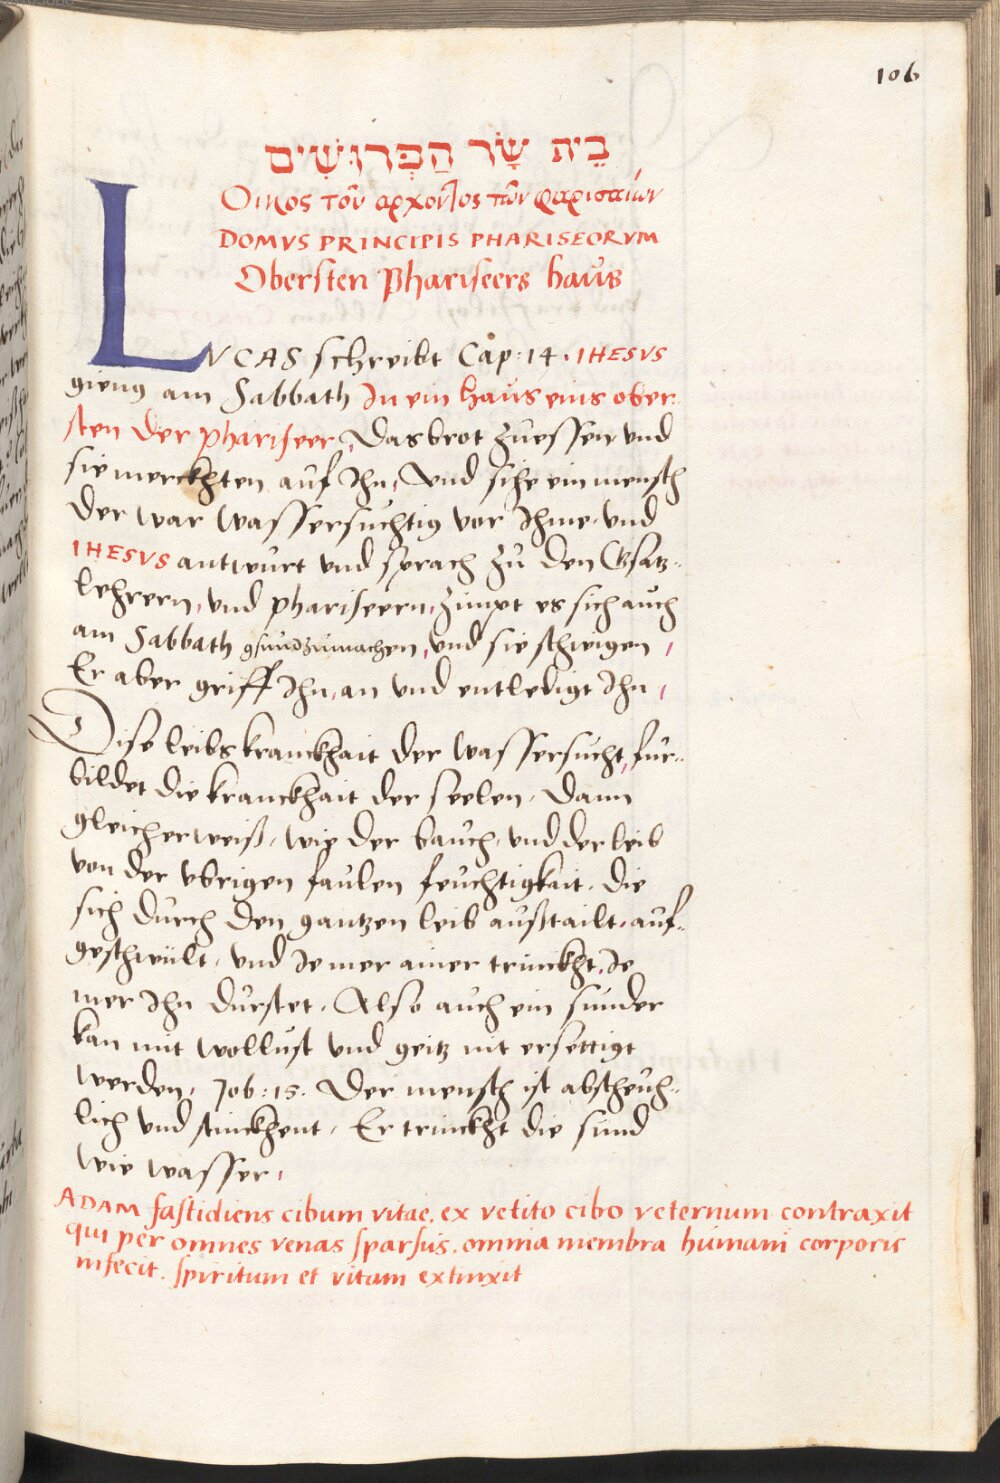 106
בֵית שָׂר הַפְּרוּשִׁים
Οικος τοῦ αρχοντος τῶν φαρισαίων
DOMVS PRINCIPIS PHARISEORVM
Obersten Phariseers haus
LVCAS schreibt Cap: 14. IHESVS
gieng am Sabbath In ein haus eins ober
sten der phariseer, Das brot zuessen und
sie merckhten auf Ihn, Und sihe ein mensch
der war wassersuchtig vor Ihme, und
IHESVS antwurt und sprach zu den Gsatz-
lehrern, und phariseern, zimpt es sich auch
am Sabbath gsundzumachen, und sie schwigen,
Er aber griff Ihn, an und entledigt Ihn,
Dise leibs kranckhait der Wassersucht, fur-
bildet die kranckhait der seelen, Dann
gleicherweiß, wie der bauch, und der leib
von der vbrigen faulen feuchtigkait, die
sich durch den gantzen leib außtailt, auf-
geschwült, und Ie mer ainer trinckht, Ie
mer Ihn durstet, Also auch ein sunder
kan mit wollust und geitz nit ersettigt
werden, Job: 15. Der mensch ist abscheuh-
lich und stinckhent, Er trinckht die sund
wie wasser,
ADAM fastidiens cibum vitae, ex vetito cibo veternum contraxit
qui per omnes venas sparsus, omnia membra humani corporis
infecit, spiritum et vitam extinxit